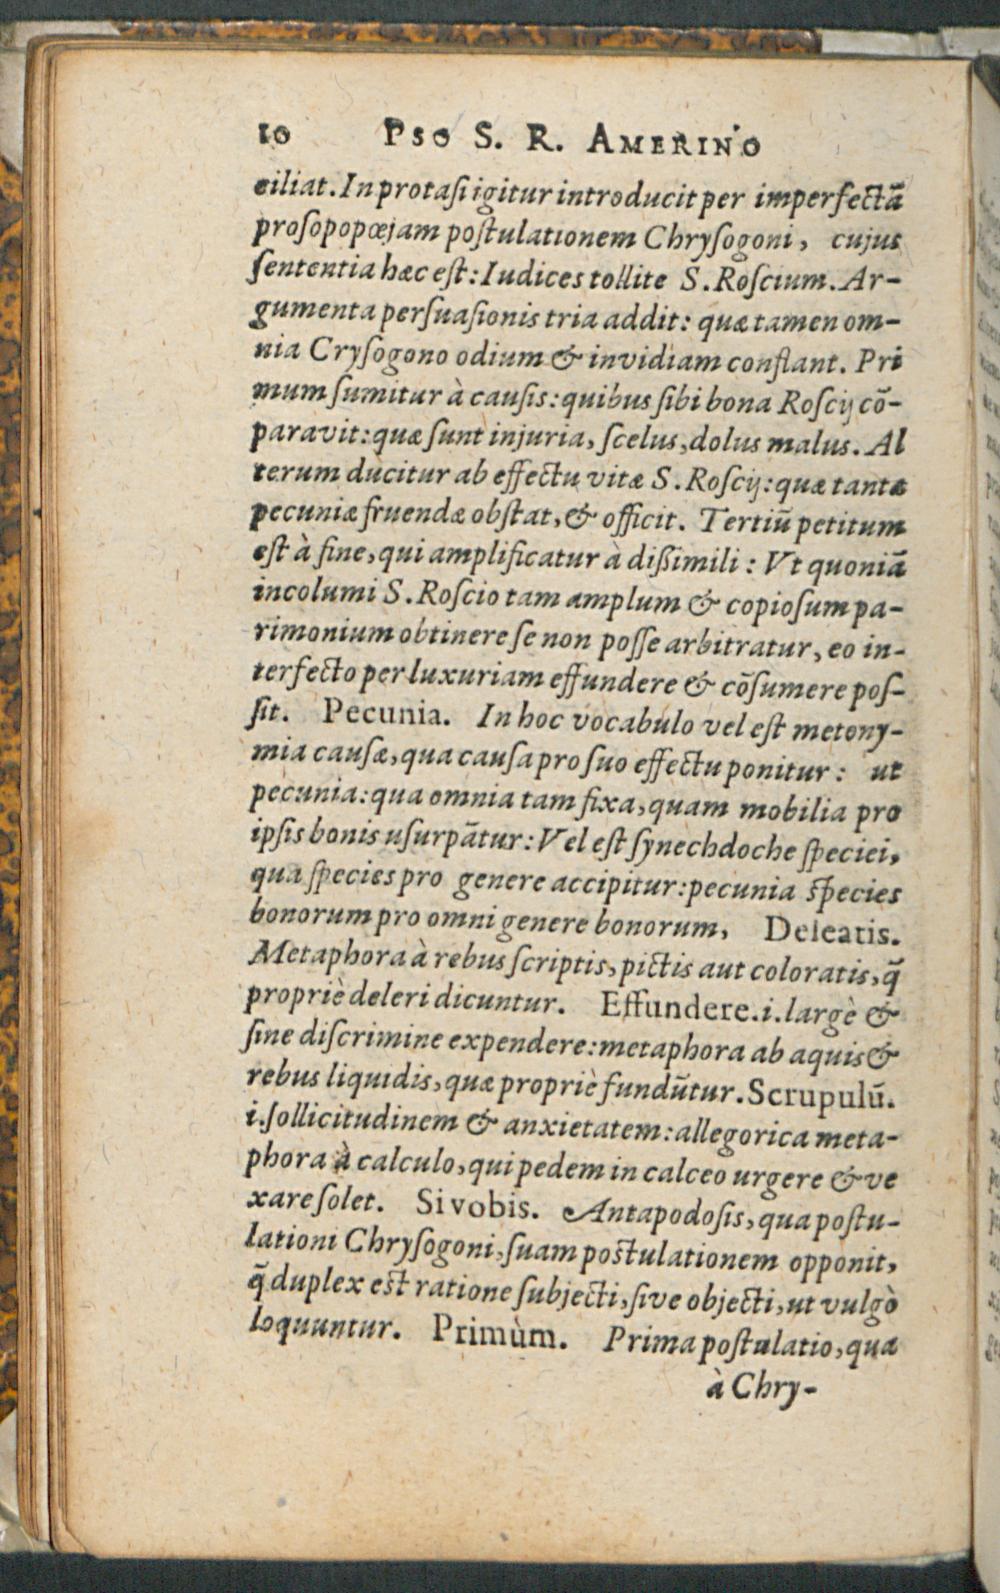 10 Pso S. R. Amerino
ciliat. In protasi igitur introducit per imperfectā
prosopopœjam postulationem Chrysogoni, cujus
sententia hæc est: Iudices tollite S. Roscium. Ar-
gumenta persuasionis tria addit: quæ tamen om-
nia Crysogono odium & invidiam conflant. Pri
mum sumitur à causis: quibus sibi bona Roscij cō-
paravit: quæ sunt injuria, scelus, dolus malus. Al
terum ducitur ab effectu vitæ S. Roscij: quæ tantæ
pecuniæ fruendæ obstat, & officit. Tertiū petitum
est à fine, qui amplificatur à dißimili: Vt quoniā
incolumi S. Roscio tam amplum & copiosum pa-
rimonium obtinere se non posse arbitratur, eo in-
terfecto per luxuriam effundere & cōsumere pos-
sit. Pecunia. In hoc vocabulo vel est metony-
mia causæ, qua causa pro suo effectu ponitur: ut
pecunia: qua omnia tam fixa, quam mobilia pro
ipsis bonis usurpātur: Vel est synechdoche speciei,
qua species pro genere accipitur: pecunia species
bonorum pro omni genere bonorum, Deleatis.
Metaphora à rebus scriptis, pictis aut coloratis, q̄
propriè deleri dicuntur. Effundere. i. largè &
sine discrimine expendere: metaphora ab aquis &
rebus liquidis, quæ propriè fundūtur. Scrupulū.
i. sollicitudinem & anxietatem: allegorica meta-
phora à calculo, qui pedem in calceo urgere & ve
xare solet. Si vobis. Antapodosis, qua postu-
lationi Chrysogoni, suam postulationem opponit,
q̄ duplex est ratione subjecti, sive objecti, ut vulgò
loquuntur. Primùm. Prima postulatio, quæ
à Chry-